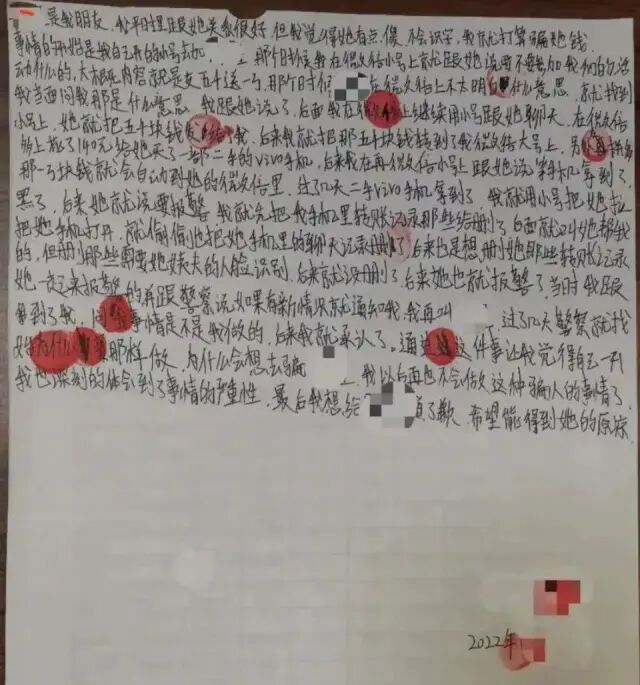 是我朋友,我平日里跟她关系很好,但我觉得她有点像不会识字,我就打算骗她钱
事情的开始是我自己用的小号去加 那个时候我在微信小号上就跟她说要不要参加我们的活
动什么的,大概内容就是交五十送一个,那个时候 在微信上不太明白什么意思,就找到
我当面问我那是什么意思,我跟她说了,后面我在微信上继续用小号跟她聊天,在微信
小号上,她就把五十块钱发给了我,后来我就把那五十块钱转到了我微信大号上,
上花了140元给她买了一部二手的vivo手机,后来我在再微信小号上跟她说等手机拿到了,
那一万块钱就会自动到她的微信里,过了几天二手vivo手机拿到了,我就用小号把她拉
黑了,后来她就说要报警,我就先把我手机里转账记录那些给删了,后面就叫她帮我
把她手机打开,就偷偷地把她手机里的聊天记录删了,后来也是想删她那些转账记录
的,但删那些需要她丈夫的人脸识别,后来就没删了,后来她也就报警了,当时我跟
她一起来报警的并跟警察说如果有新情况就通知我,我再叫 过了几天警察就找
到了我,问 事情是不是我做的,后来我就承认了,通过这件事让我觉得自己
为什么要那样做,为什么会想去骗
我也深刻的体会到了事情的严重性, 我以后面也不会做这种骗人的事情了
最后我想给 道了歉,希望能得到她的原谅
2022年